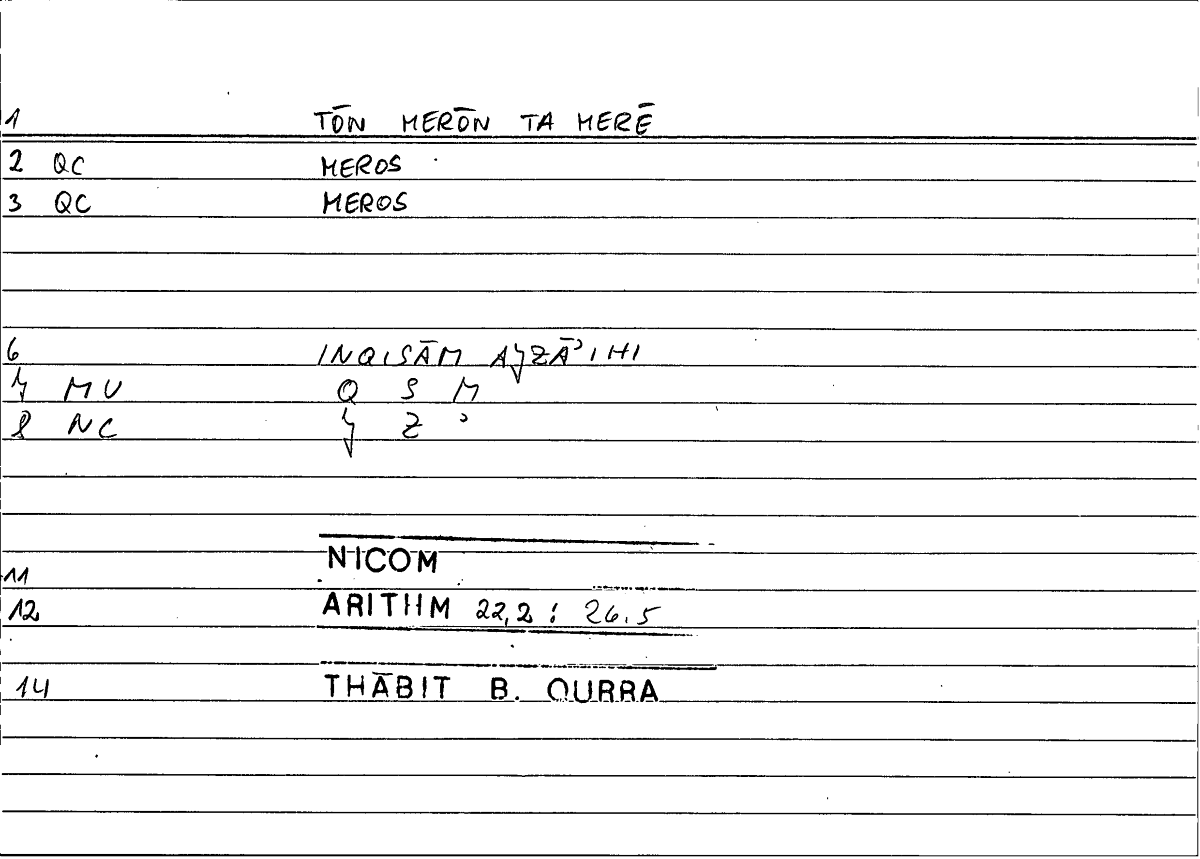 1 TŌN MERŌN TA MERĒ
2 QC MEROS
3 QC MEROS
6 INQISĀM AǦZĀʾIHI
7 MU Q S M
8 NC Ǧ Z ʾ
11 NICOM
12 ARITHM 22,2 : 26.5
14 THĀBIT B. QURRA